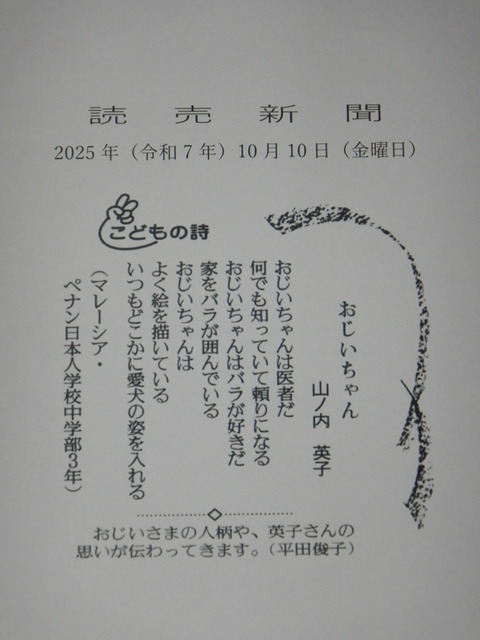 読売新聞
2025年（令和7年）10月10日（金曜日）
こどもの詩
おじいちゃん
山ノ内 英子
おじいちゃんは医者だ
何でも知っていて頼りになる
おじいちゃんはバラが好きだ
家をバラが囲んでいる
おじいちゃんは
よく絵を描いている
いつもどこかに愛犬の姿を入れる
（マレーシア・
ペナン日本人学校中学部3年）
おじいさまの人柄や、英子さんの
思いが伝わってきます。（平田俊子）